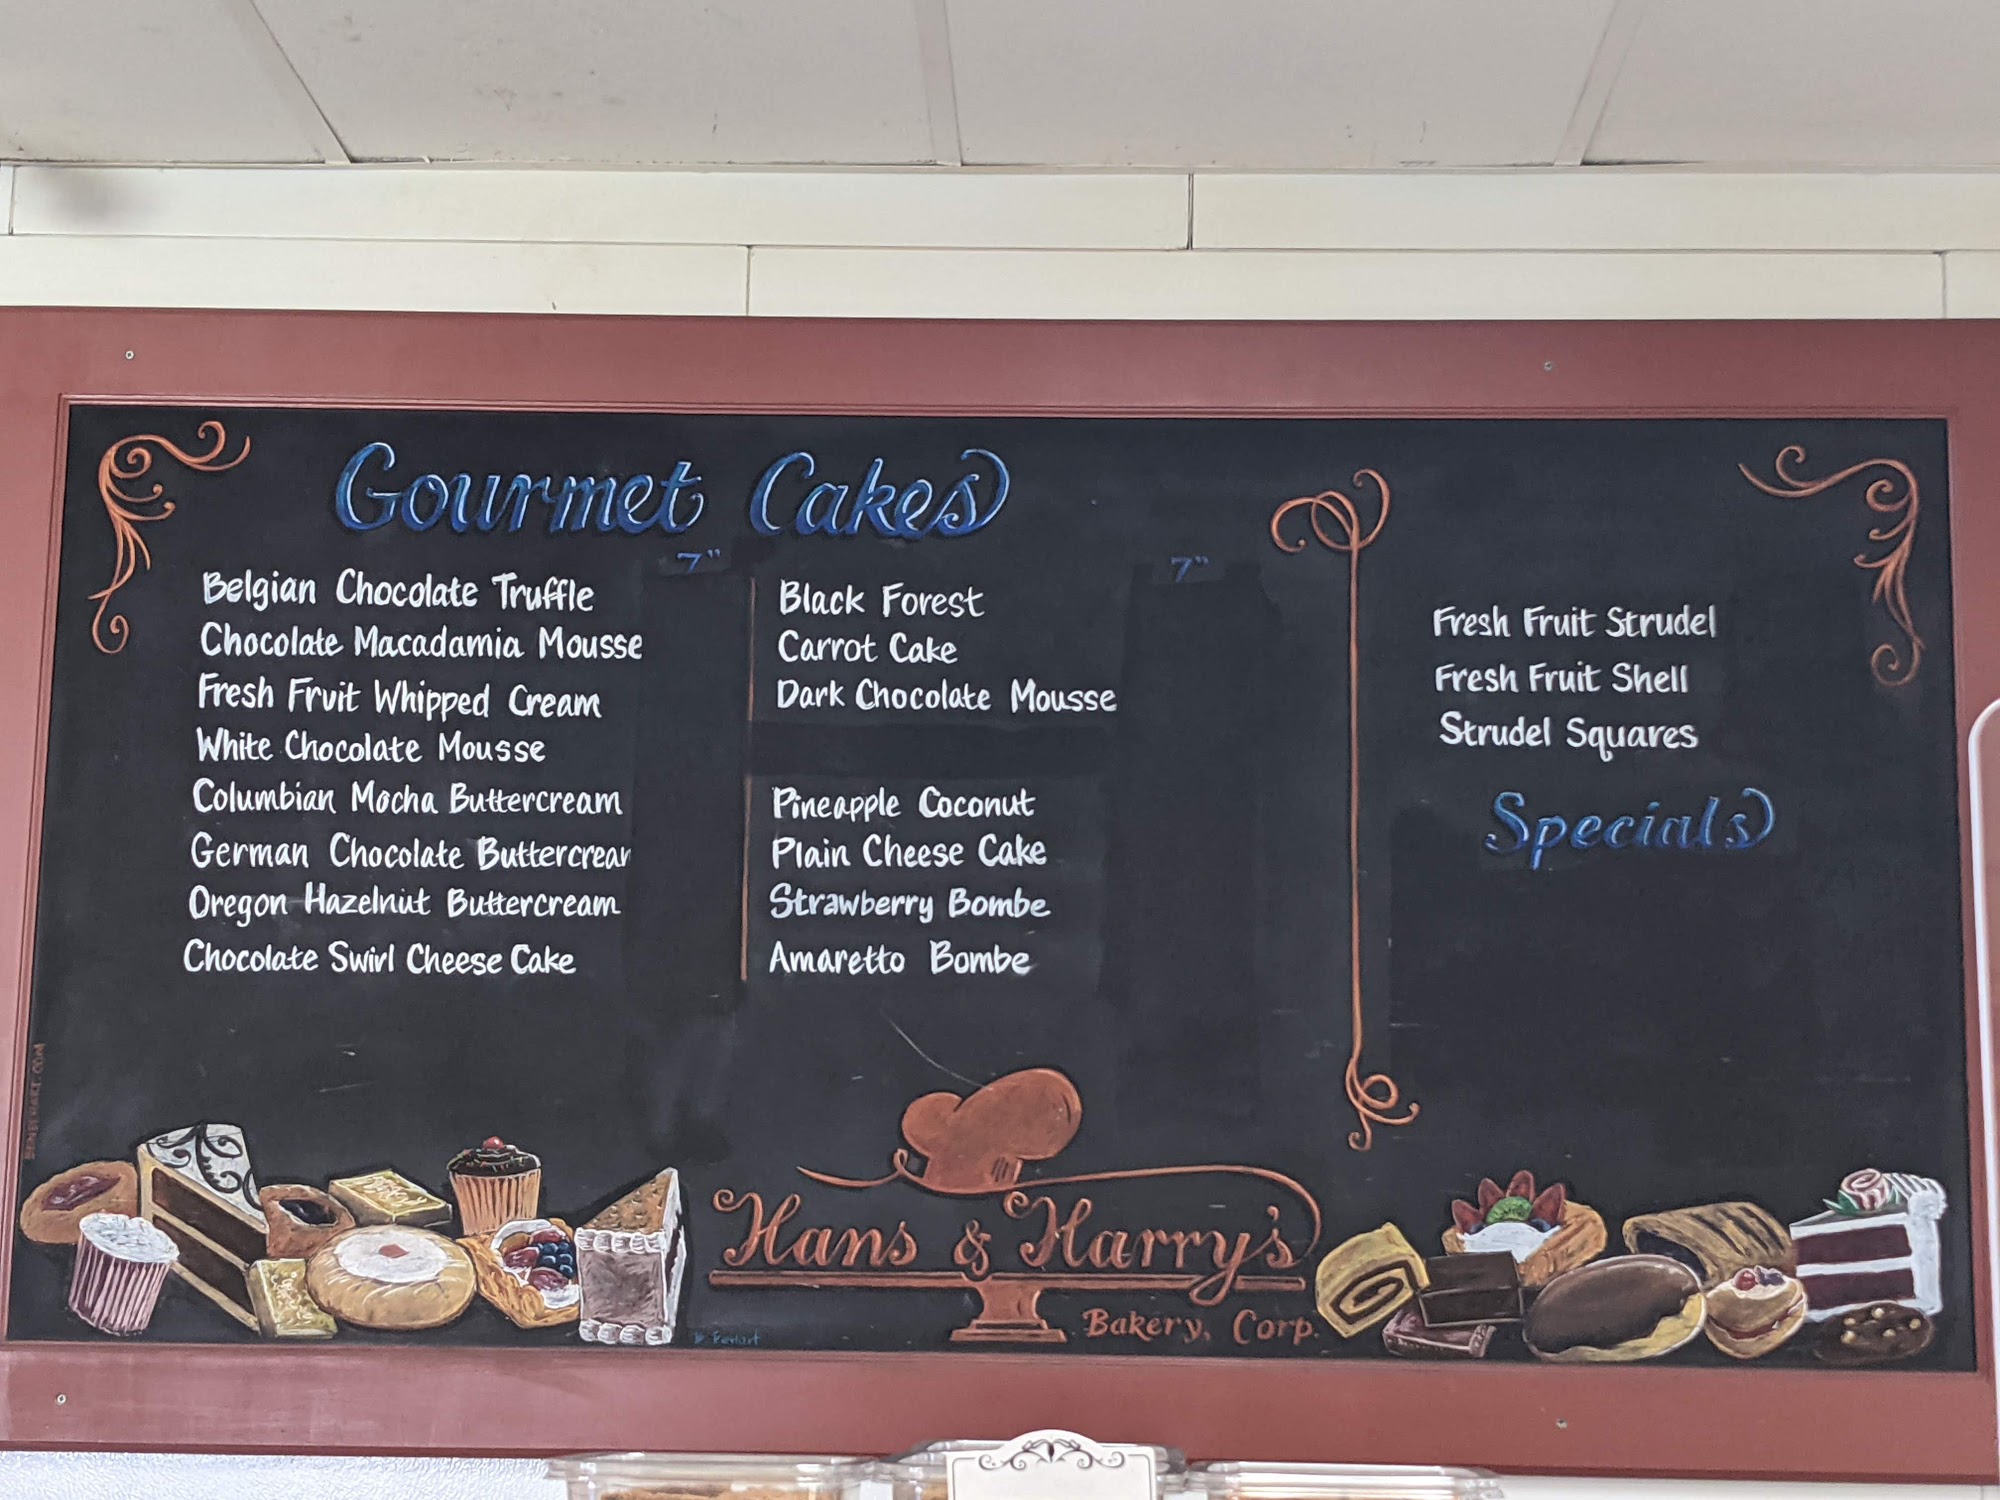 Gourmet Cakes
7"
Belgian Chocolate Truffle
Chocolate Macadamia Mousse
Fresh Fruit Whipped Cream
White Chocolate Mousse
Columbian Mocha Buttercream
German Chocolate Buttercream
Oregon Hazelnut Buttercream
Chocolate Swirl Cheese Cake
7"
Black Forest
Carrot Cake
Dark Chocolate Mousse
Pineapple Coconut
Plain Cheese Cake
Strawberry Bombe
Amaretto Bombe
Fresh Fruit Strudel
Fresh Fruit Shell
Strudel Squares
Specials
Hans & Harry's
Bakery, Corp.